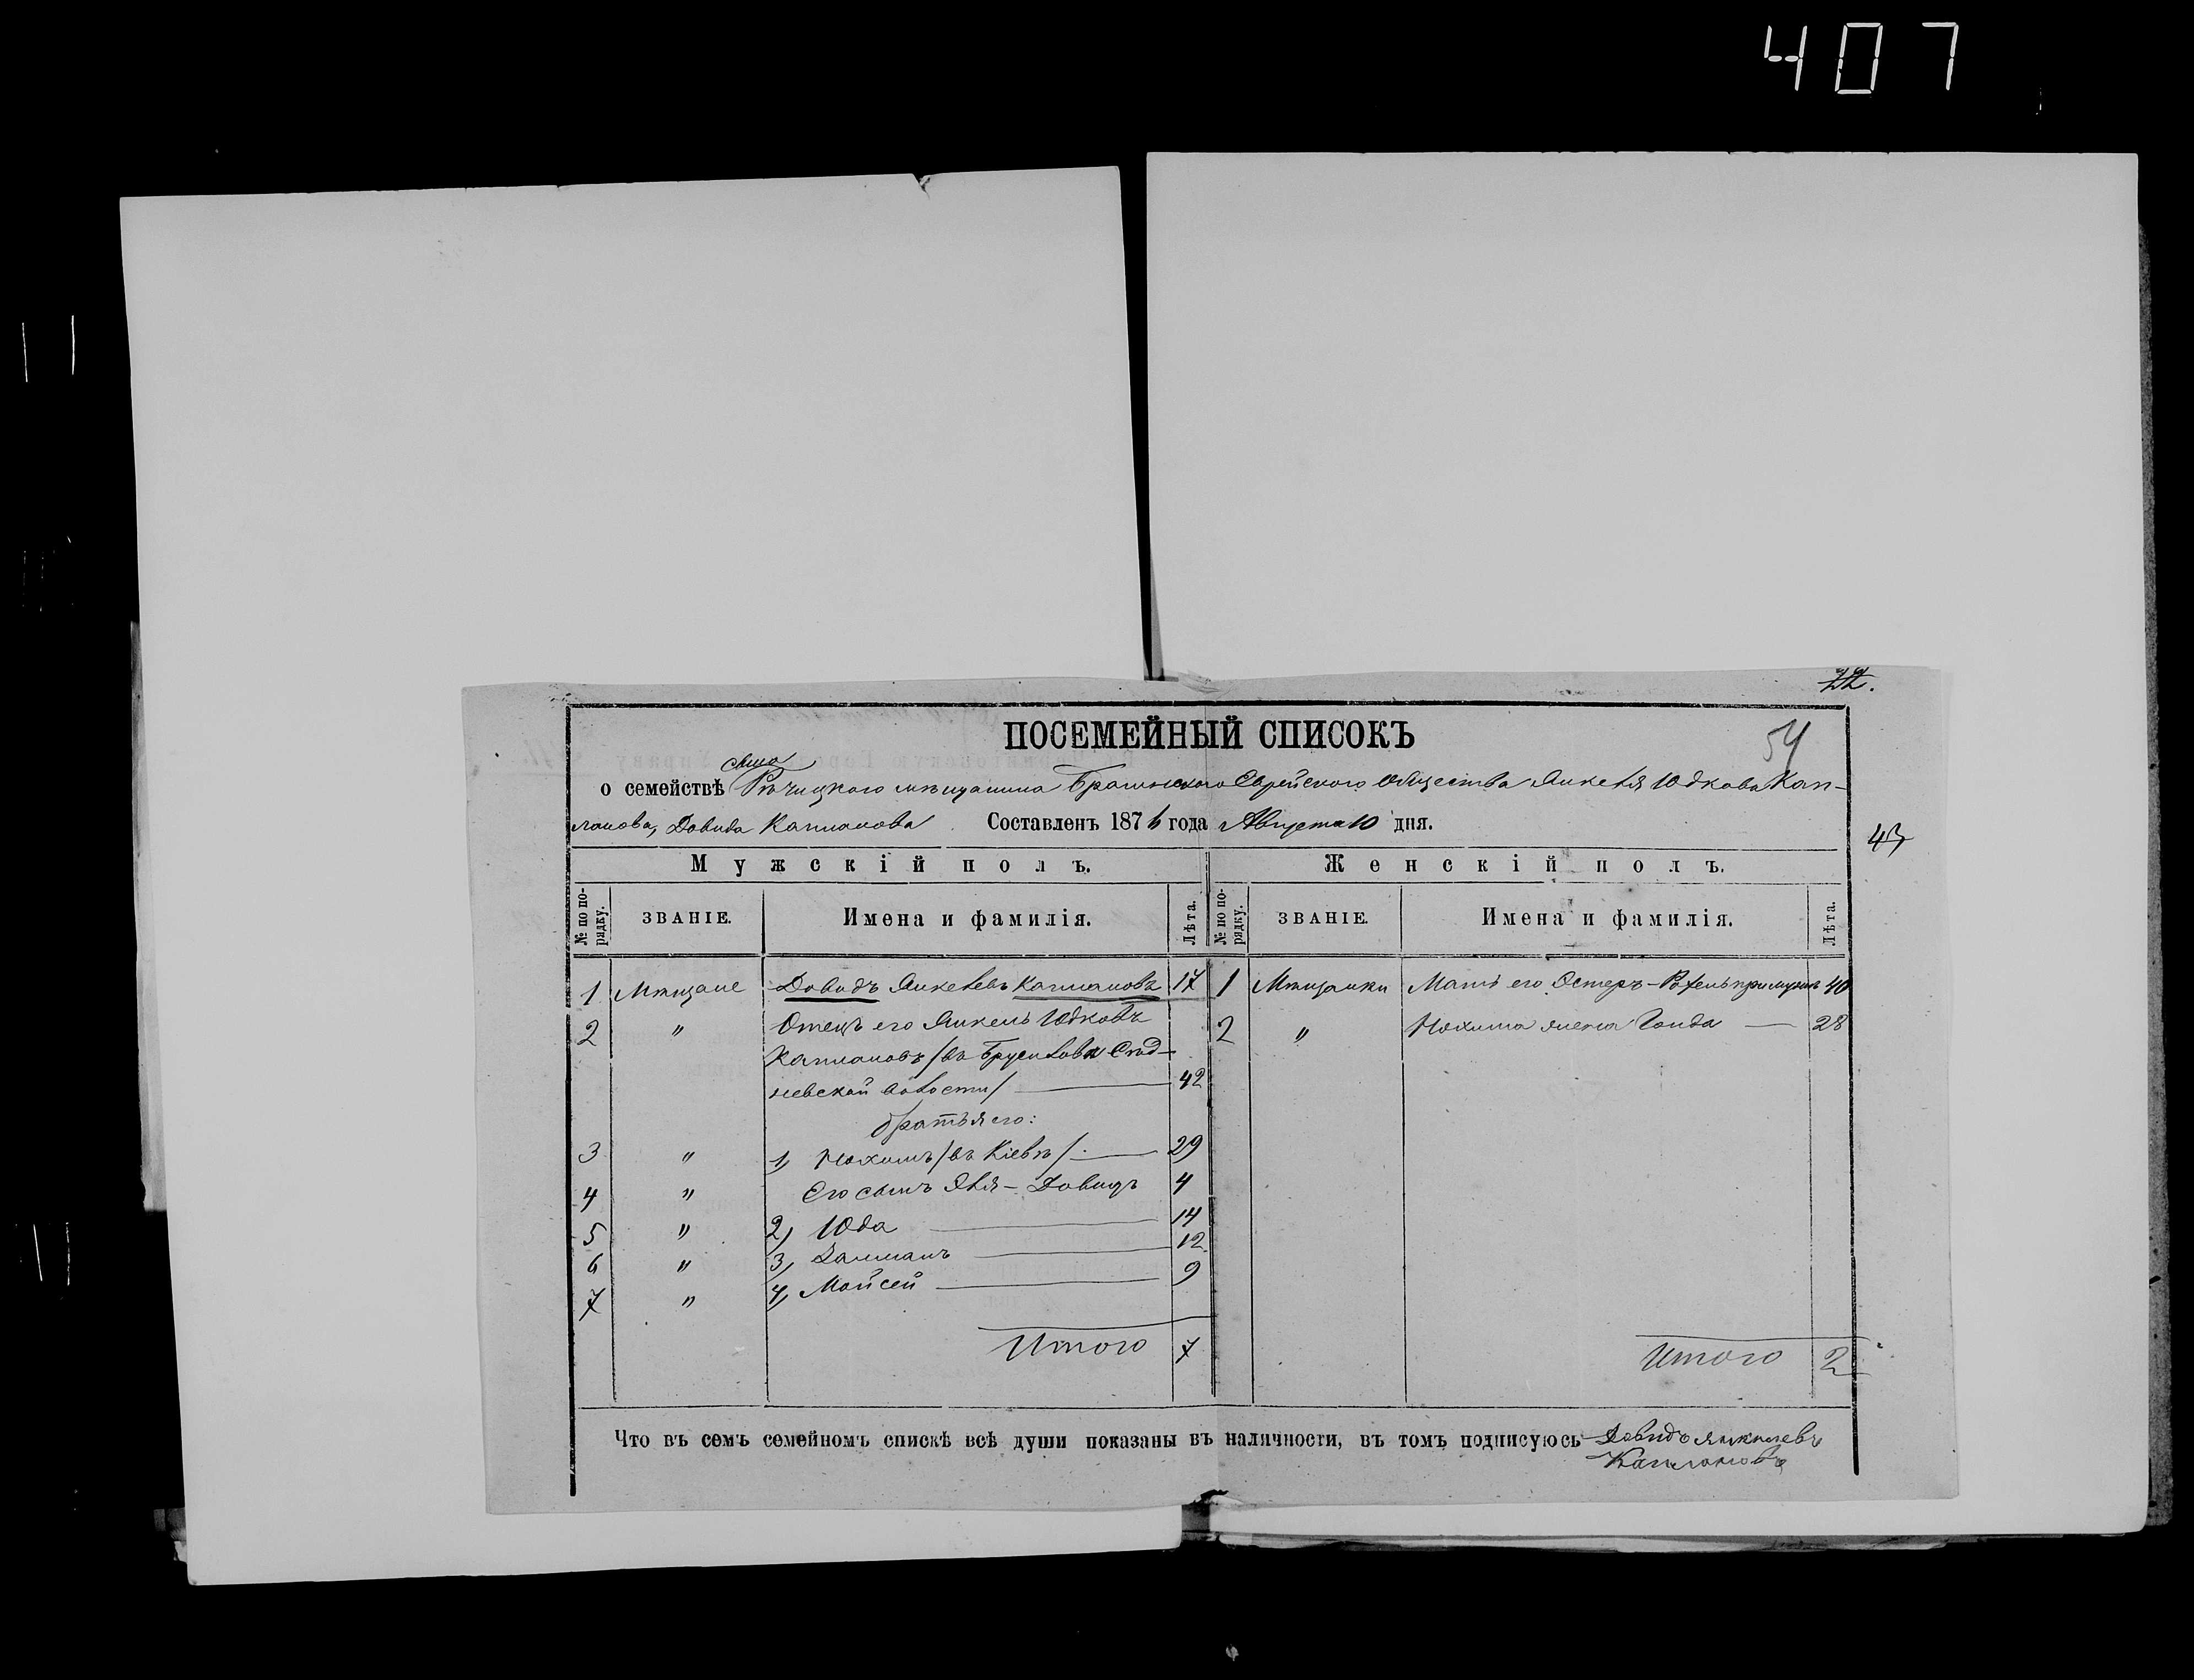 407
22.
ПОСЕМЕЙНЫЙ СПИСОКЪ
54
сына
о семействѣ Рѣчицкого мѣщанина Брагинского Еврейского Общества Янкеля Юдкова Кап-
ланова, Довида Капланова Составленъ 1876 года Августа 10 дня.
43
Мужскій полъ. Женскій полъ.
№ по порядку. ЗВАНІЕ. Имена и фамилія. Лѣта. № по порядку. ЗВАНІЕ. Имена и фамилія. Лѣта.
1 Мѣщане Довидъ Янкелевъ Каплановъ 17 1 Мѣщанки Мать его Эстеръ-Рохель при мужѣ 40
2 " Отецъ его Янкель Юдковъ 2 " Нохима жена Гонда — 28
Каплановъ /въ Брусиловѣ
невской волости/ — 42
братья его:
3 " 1, Нохимъ /въ Кіевѣ/ — 29
4 " Его сынъ Эля-Довидъ 4
5 " 2, Юда — 14
6 " 3, Залманъ — 12
7 " 4, Мойсей — 9
Итого 7 Итого 2
Что въ семъ семейномъ спискѣ всѣ души показаны въ наличности, въ томъ подписуюсь Довидъ Янкелевъ
Каплановъ